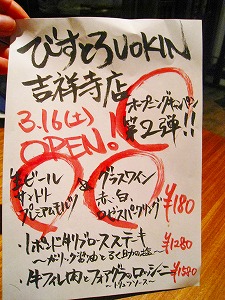 びすとろUOKIN
吉祥寺店
オープニングキャンペーン
第2弾!!
3.16(土)
OPEN!
生ビール
サントリー
プレミアムモルツ
&
グラスワイン
赤、白、
ロゼスパークリング
¥180
1ポンド牛リブロースステーキ
¥1280
〜ガーリック醤油とろく助の塩〜
牛フィレ肉とフォアグラのロッシーニ
¥1580
〜トリュフソース〜